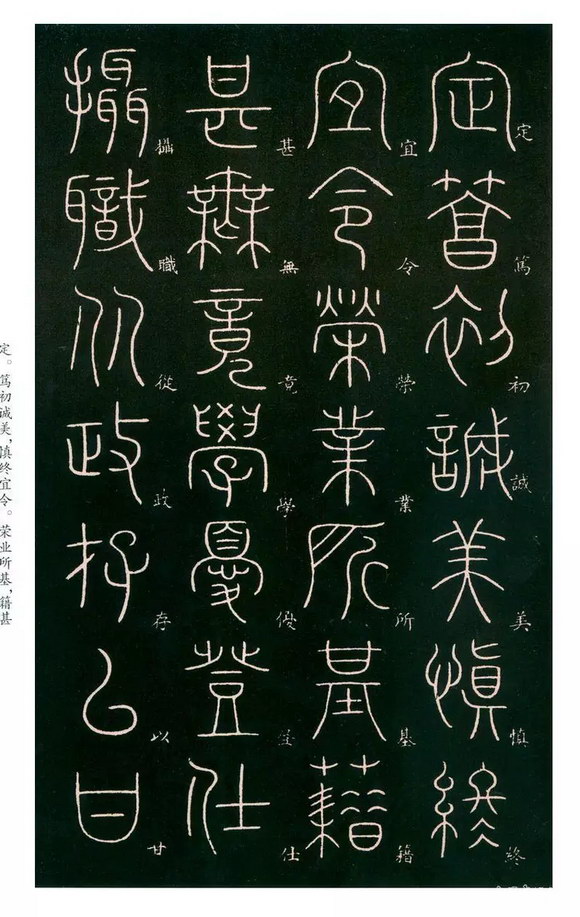 定篤初誠美慎終
定篤初誠美慎終
宜令榮業所基藉
宜令榮業所基籍
甚無竟學憂登仕
甚無竟學優登仕
攝職从政存以甘
攝職從政存以甘
定。笃初诚美,慎终宜令。荣业所基,籍甚